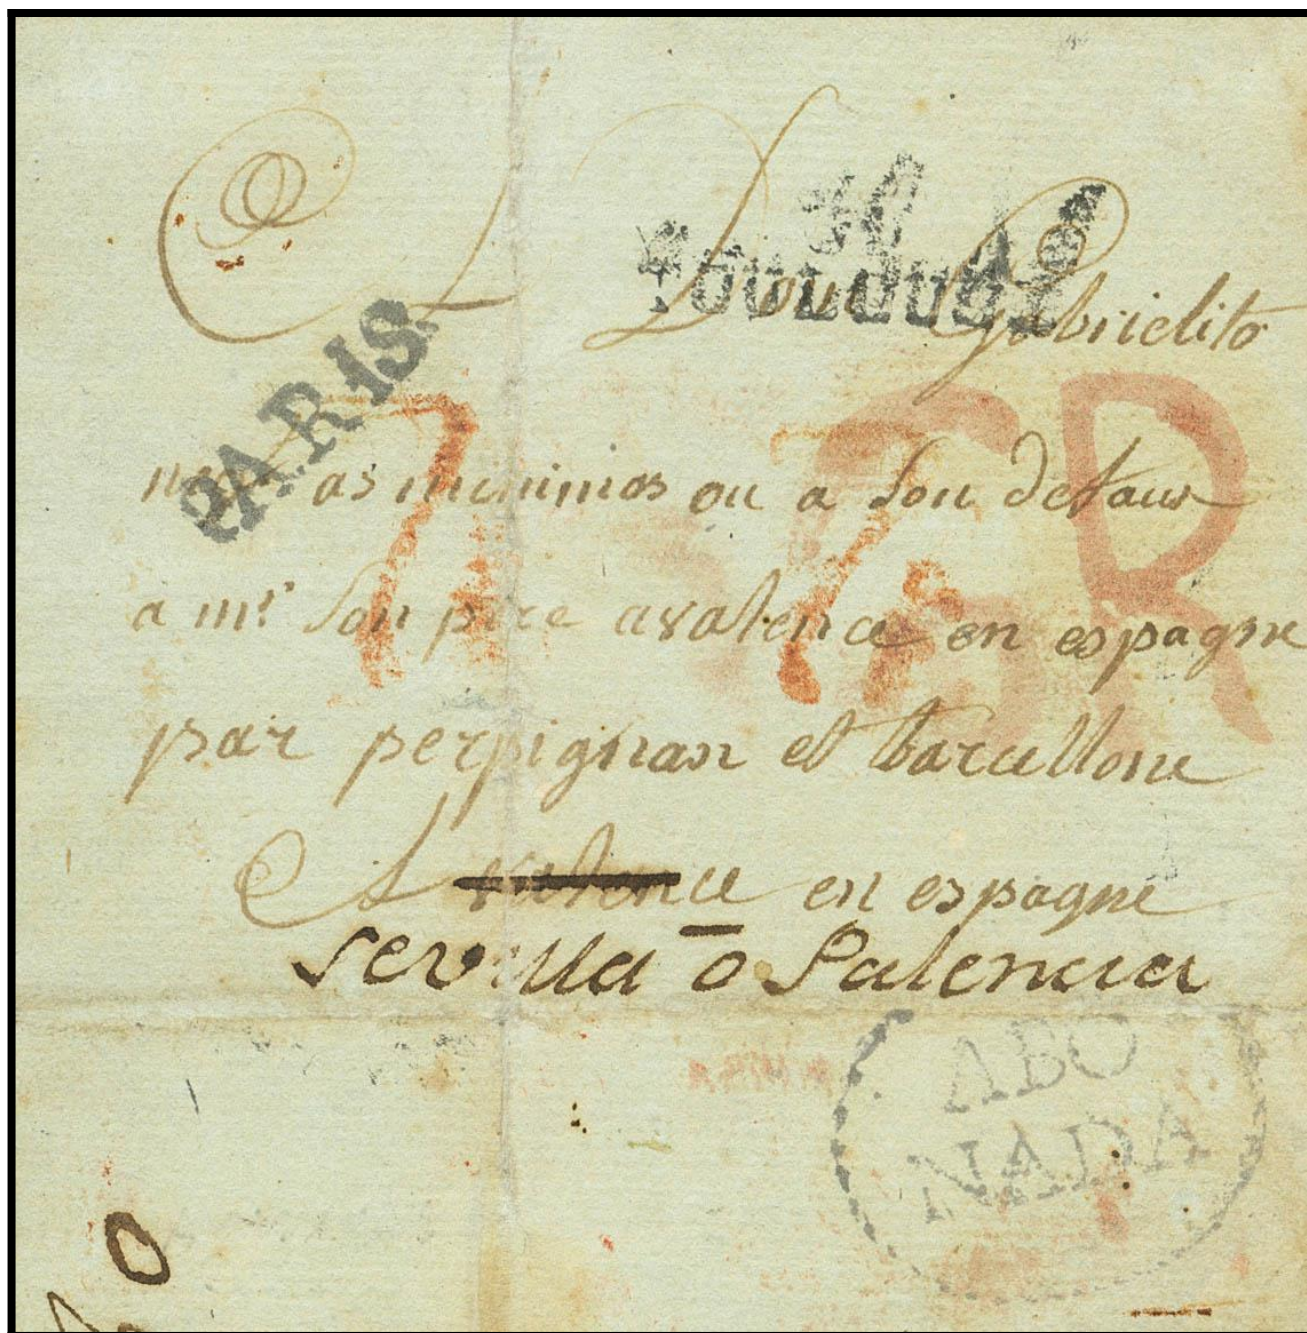 A Don Gabrielito
PARIS
as minimos ou a Son defaus
a mr. Son pere avalence en espagne
par perpignan et barcellone
A valence en espagne
sevilla o Palencia
ABO
NADA